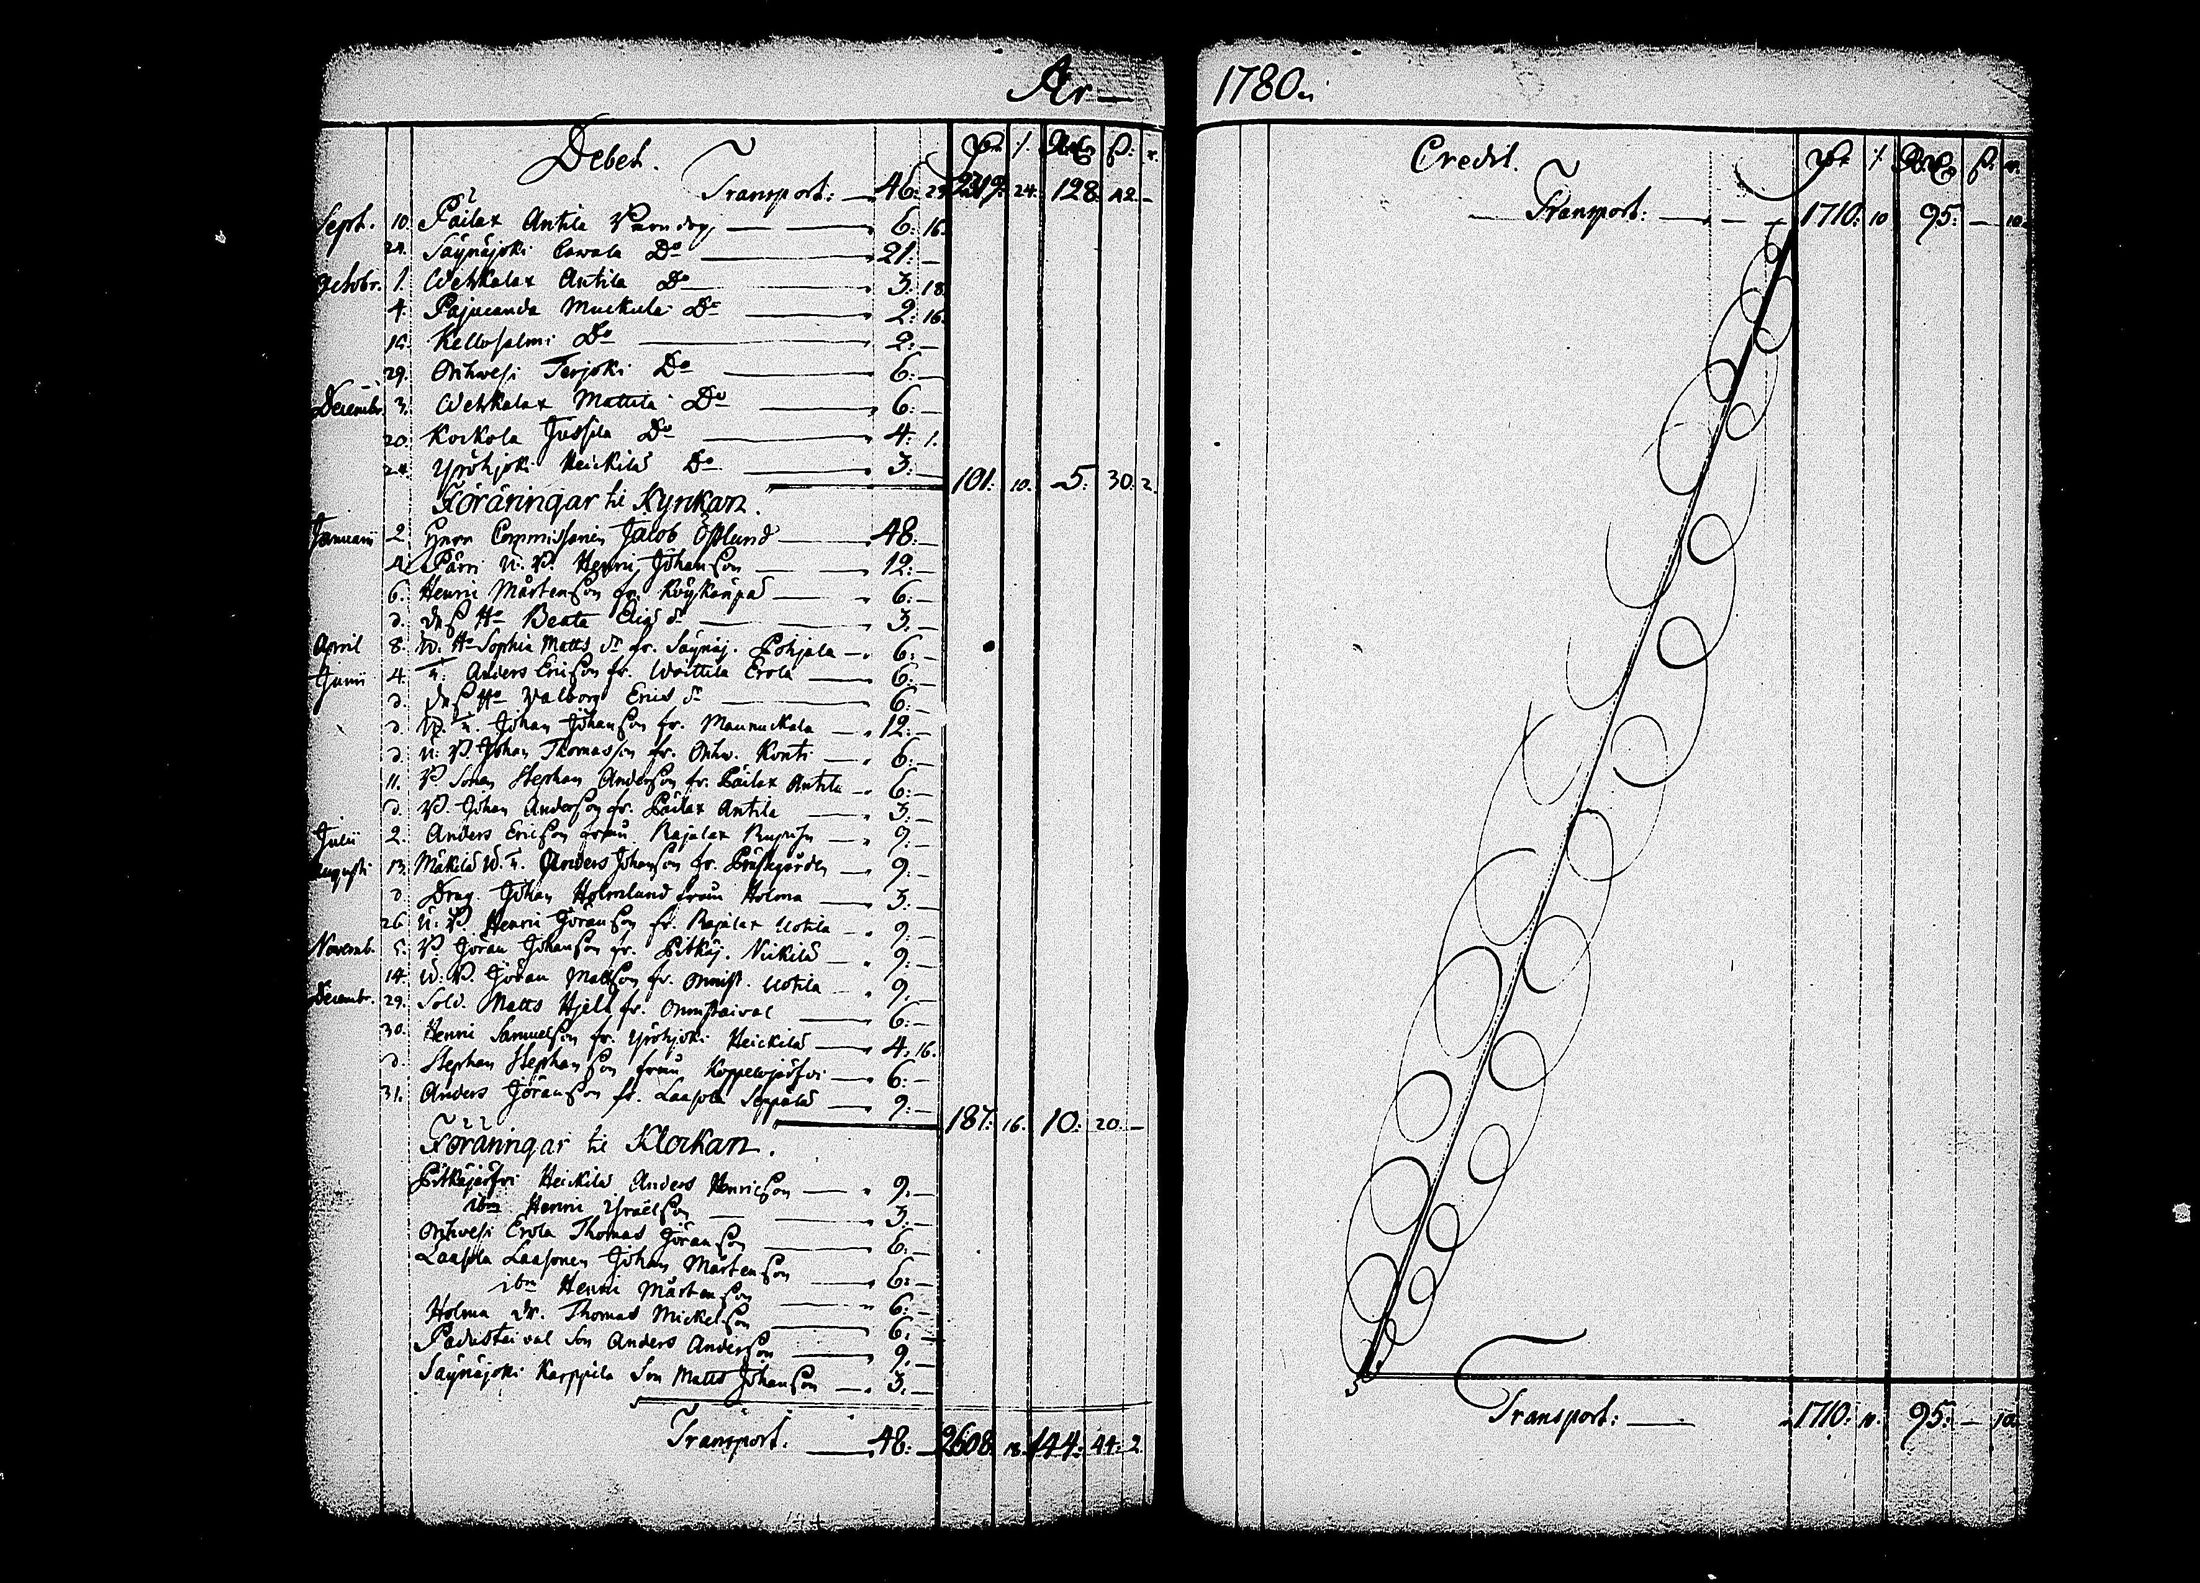 År —
Debet.
Transport: — 46: 2319: 24. 128: 42. —
Sept. 10. Pailax Antila — 6: 16.
24. Säynäjoki Cawala Do — 21: —
Octobr. 1. Wetkalax Antila Do — 3: 18
4. Pajuranda Muckula Do — 2: 16.
Kellosalmi Do — 2: —
29. Onkwesi Terjoki Do — 6: —
Decembr. 3. Wetkalax Mattila Do — 6: —
20. Kockola Jussila Do — 4: 1.
24. Yröhjoki Heickilä Do — 3: — 101: 10. 5: 30: 2.
Föräningar til Kyrkan.
Januarii 2. Herr Commissarien Jacob Östlund — 48: —
4. Pärri U. P. Henric Johansson — 12: —
6. Henric Mårtensson fr. Köykänpää — 6: —
d. deß Ho Beata — 3: —
April 8. W. Ho Sophia Matts dr fr. Säynäj. Pohjala — 6: —
Junii 4. Anders Ericsson fr. Woittila Erola — 6: —
d. deß Ho Walborg Erics dr — 6: —
d. Johan Johansson fr. Maunuckala — 12: —
d. U. P. Johan Thomasson fr. Onkw. Konti — 6: —
11. P Sonen Stephan Andersson fr. Pailax Antila — 6: —
d. P. Johan Andersson fr. Pailax Antila — 3: —
Julii 2. Anders Ericsson från Rajalax — 9: —
Augusti 13. Mäkilä Anders Johansson fr. Prästgården — 9: —
d. Drag. Johan Holmlund från Holma — 3: —
26. U. P. Henric Göransson fr. Rajalax Uotila — 9: —
Novemb. 5. P Göran Johansson fr. Pitkäj. Nickilä — 9: —
14. U. P. Göran Mattsson fr. Uotila — 9: —
Decembr. 29. Sold. Matts Hjelt fr. — 6: —
30. Henric Samuelsson fr. Yröhjoki Heickilä — 4: 16.
d. Stephan Stephansson från Koppelojärfvi — 6: —
31. Anders Göransson fr. Laasola Seppälä — 9: — 187: 16. 10: 20: —
Föräningar til Klockan.
Pitkäjärfvi Heickilä Anders Henricsson — 9: —
ibm Henric Yraelsson — 3: —
Onkwesi Erola Thomas Göransson — 6: —
Laasola Laasonen Johan Mårtensson — 6: —
ibm Henric Mårtensson — 6: —
Holma Dr. Thomas Mickelsson — 6: —
Padustaival Son Anders Andersson — 9: —
Säynäjoki Karppila Son Matts Johansson — 3: —
Transport. — 48: — 2608: 18. 144: 44: 2.
1780.
Credit.
Transport: — 1710: 10 95: — 10.
Transport: — 1710: 10. 95: — 10.